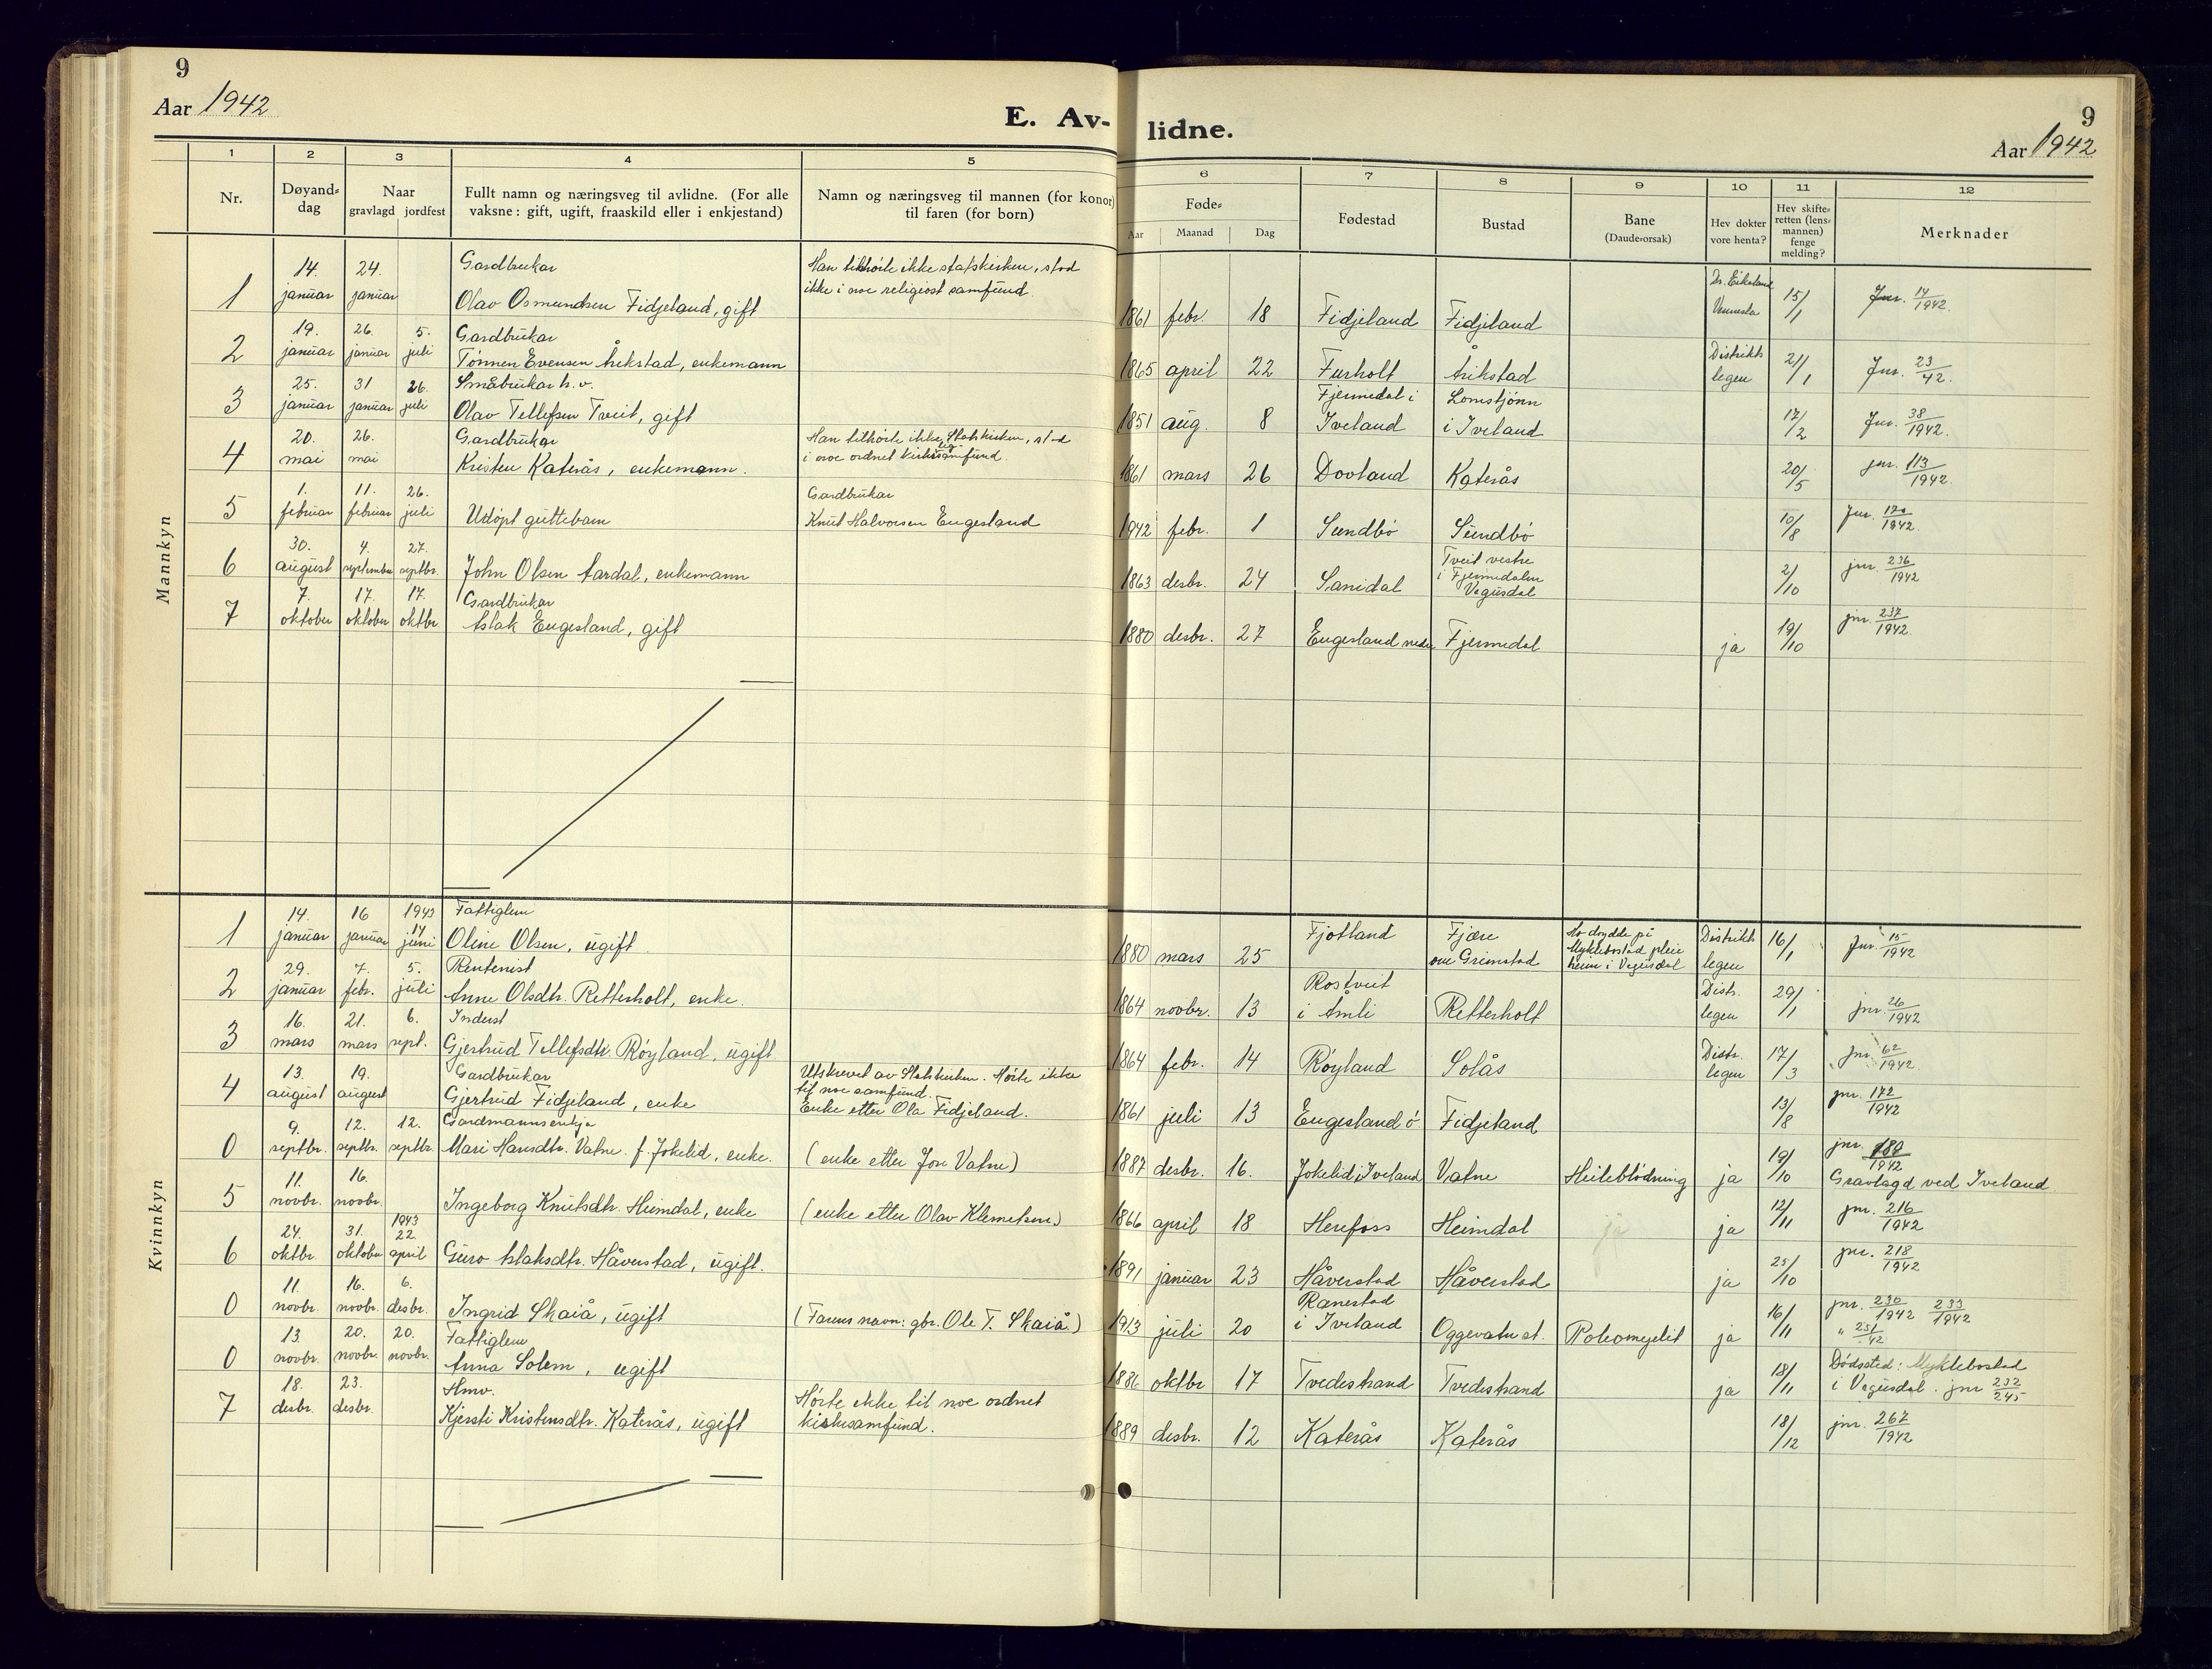 9
Aar 1942
E. Av-
lidne.
9
Aar 1942
1 2 3 4 5 6 7 8 9 10 11 12
Nr.
Døyand-
dag
Naar
gravlagd jordfest
Fullt namn og næringsveg til avlidne. (For alle
vaksne: gift, ugift, fraaskild eller i enkjestand)
Namn og næringsveg til mannen (for konor)
til faren (for born)
Føde-
Aar Maanad Dag
Fødestad
Bustad
Bane
(Daude-orsak)
Hev dokter
vore henta?
Hev skifte-
retten (lens-
mannen)
fenge
melding?
Merknader
Mannkyn
1 14. januar 24. januar
Gardbrukar
Olav Osmundsen Fidjeland, gift
Han tilhörte ikke statskirken, stod
ikke i noe religiöst samfund.
1861 febr. 18 Fidjeland Fidjeland Dr. Eikeland Vennesla 15/1 Jnr. 14/1942.
2 19. januar 26. januar 5. juli
Gardbrukar
Tönnes Evensen Årikstad, enkemann
1865 april 22 Furholt Årikstad Distrikts legen 21/1 Jnr. 23/42.
3 25. januar 31 januar 26. juli
Småbrukar h. v.
Olav Tellefsen Tveit, gift
1851 aug. 8 Fjermedal i Iveland Lomstjönn i Iveland 17/2 Jnr. 38/1942.
4 20. mai 26. mai
Gardbrukar
Kristen Katerås, enkemann.
Han tilhörte ikke Statskirken, stod
i noe ordnet kirkelig samfund.
1861 mars 26 Dovland Katerås 20/5 jnr. 113/1942.
5 1. februar 11. februar 26. juli
Udöpt guttebarn
Gardbrukar
Knut Halvorsen Engesland
1942 febr. 1 Sundbö Sundbö 10/8 Jnr. 170/1942.
6 30. august 4. september 27. septbr.
John Olsen Aardal, enkemann
1863 desbr. 24 Sanidal Tveit vestre i Fjermedalen Vegusdal 2/10 jnr. 236/1942
7 7. oktober 17. oktober 17. oktbr
Gardbrukar
Aslak Engesland, gift
1880 desbr. 27 Engesland nedre Fjermedal ja 19/10 jnr. 237/1942.
Kvinnkyn
1 14. januar 16 januar 1943 14 juni
Fattiglem
Oline Olsen, ugift
1880 mars 25 Fjotland Fjære Grimstad Ho döydde på Myklebostad pleie heim i Vegusdal Distrikts legen 16/1 Jnr. 15/1942
2 29. januar 7. febr. 5. juli
Rentenist
Anne Olsdtr. Retterholt, enke.
1864 novbr. 13 Rostveit i Åmli Retterholt Distr. legen 29/1 jnr. 26/1942
3 16. mars 21. mars 6. sept.
Inderst
Gjertrud Tellefsdtr. Röyland, ugift
1864 febr. 14 Röyland Solås Distr. legen 17/3 Jnr. 62/1942.
4 13. august 19. august
Gardbrukar
Gjertrud Fidjeland, enke
Utskrevet av Statskirken. Hörte ikke
til noe samfund.
Enke etter Ola Fidjeland.
1861 juli 13 Engesland ö Fidjeland 13/8 jnr. 172/1942
0 9. septbr. 12. septbr. 12. septbr.
Gardmannsenkja
Mari Hansdtr. Vatne. f. Jokelid, enke.
(enke etter Jon Vatne)
1887 desbr. 16. Jokelid i Iveland Vatne Heileblödning ja 19/10 jnr. 180/1942
Gravlagd ved Iveland
5 11. novbr. 16. novbr.
Ingeborg Knutsdtr. Heimdal, enke
(enke etter Olav Klemetsen)
1866 april 18 Herefoss Heimdal ja 12/11 jnr. 216/1942
6 24. oktbr. 31. oktober 1943 22 april
Guro Aslaksdtr. Håverstad, ugift.
1891 januar 23 Håverstad Håverstad ja 25/10 jnr. 218/1942
0 11. novbr. 16. novbr. 6. desbr.
Ingrid Skaiå, ugift
(Farens navn: gbr. Ole T. Skaiå.)
1913 juli 20 Ranestad i Iveland Oggevatn st. Poliomyelit ja 16/11 jnr. 230/1942 233/1942
" 251/42
0 13. novbr. 20. novbr. 20. novbr.
Fattiglem
Anna Solem, ugift
1886 oktbr 17 Tvedestrand Tvedestrand ja 18/11 Dödssted: Myklebostad
i Vegusdal. jnr 232/245
7 18. desbr. 23. desbr.
Hmv.
Kjersti Kristensdtr. Katerås, ugift
Hörte ikke til noe ordnet
kirkesamfund.
1889 desbr. 12 Katerås Katerås 18/12 jnr. 267/1942